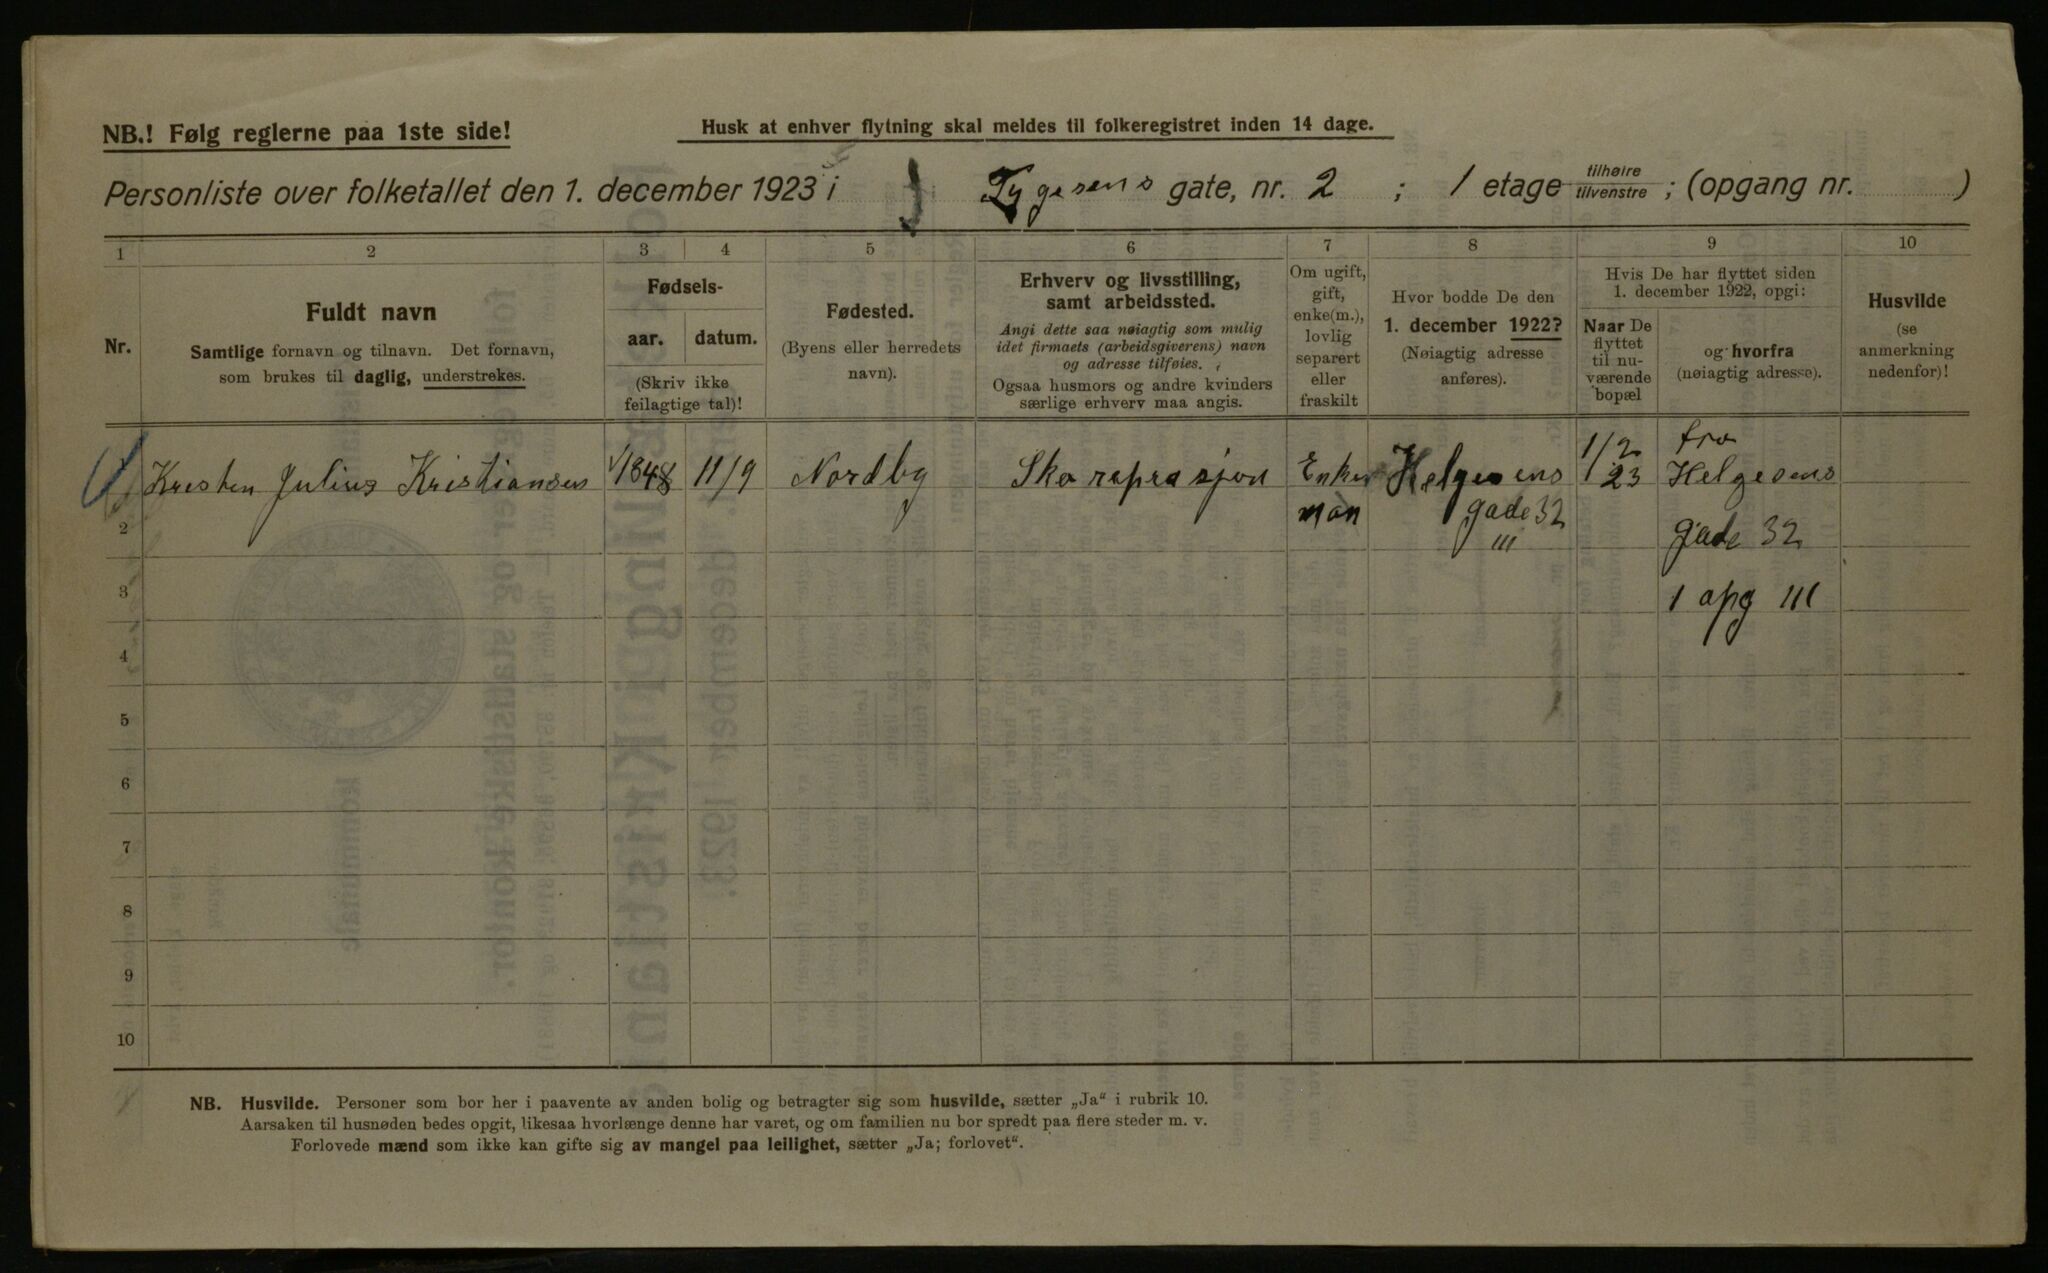 NB.! Følg reglerne paa 1ste side!
Husk at enhver flytning skal meldes til folkeregistret inden 14 dage.
Personliste over folketallet den 1. december 1923 i Tygesens gate, nr. 2 ; 1 etage tilhøire tilvenstre ; (opgang nr. )
1 2 3 4 5 6 7 8 9 10
Nr.
Fuldt navn
Samtlige fornavn og tilnavn. Det fornavn,
som brukes til daglig, understrekes.
Fødsels-
aar. datum.
(Skriv ikke
feilagtige tal)!
Fødested.
(Byens eller herredets
navn).
Erhverv og livsstilling,
samt arbeidssted.
Angi dette saa nøiagtig som mulig
idet firmaets (arbeidsgiverens) navn
og adresse tilføies.
Ogsaa husmors og andre kvinders
særlige erhverv maa angis.
Om ugift,
gift,
enke(m.),
lovlig
separert
eller
fraskilt
Hvor bodde De den
1. december 1922?
(Nøiagtig adresse
anføres).
Hvis De har flyttet siden
1. december 1922, opgi:
Naar De
flyttet
til nu-
værende
bopæl
og hvorfra
(nøiagtig adresse).
Husvilde
(se
anmerkning
nedenfor)!
Kresten Julius Kristiansen 1848 11/9 Nordby Sko raprasjon Enke Helgesens 1/2 fra
man gade 32 23 Helgesens
III gade 32
1 opg III
2
3
4
5
6
7
8
9
10
NB. Husvilde. Personer som bor her i paavente av anden bolig og betragter sig som husvilde, sætter „Ja“ i rubrik 10.
Aarsaken til husnøden bedes opgit, likesaa hvorlænge denne har varet, og om familien nu bor spredt paa flere steder m. v.
Forlovede mænd som ikke kan gifte sig av mangel paa leilighet, sætter „Ja; forlovet“.